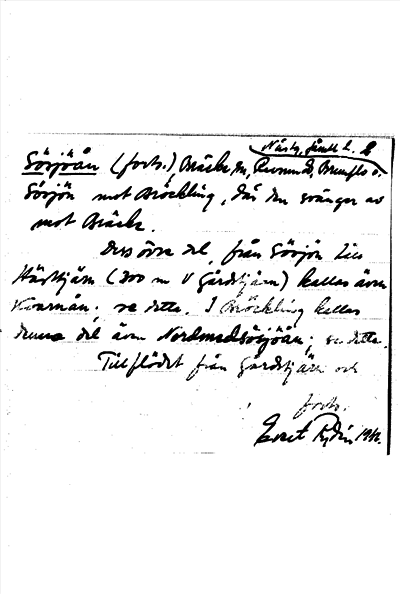 Näsk, Jämtl. l. 2
Sörsjöån (forts.) Bräcke sn, Revsund, Brunflo o.
Sörsjön mot Bröckling, där den svänger av
mot Bräcke.
Dess övre del, från Sörsjön till
Hästtjärn (200 m V Gärdstjärn) kallas även
Kvarnån; se detta. I Bröckling kallas
denna del även Nordmedsörsjöån; se detta.
Tillflödet från Gärdstjärn och
forts.
Rydin 1942.